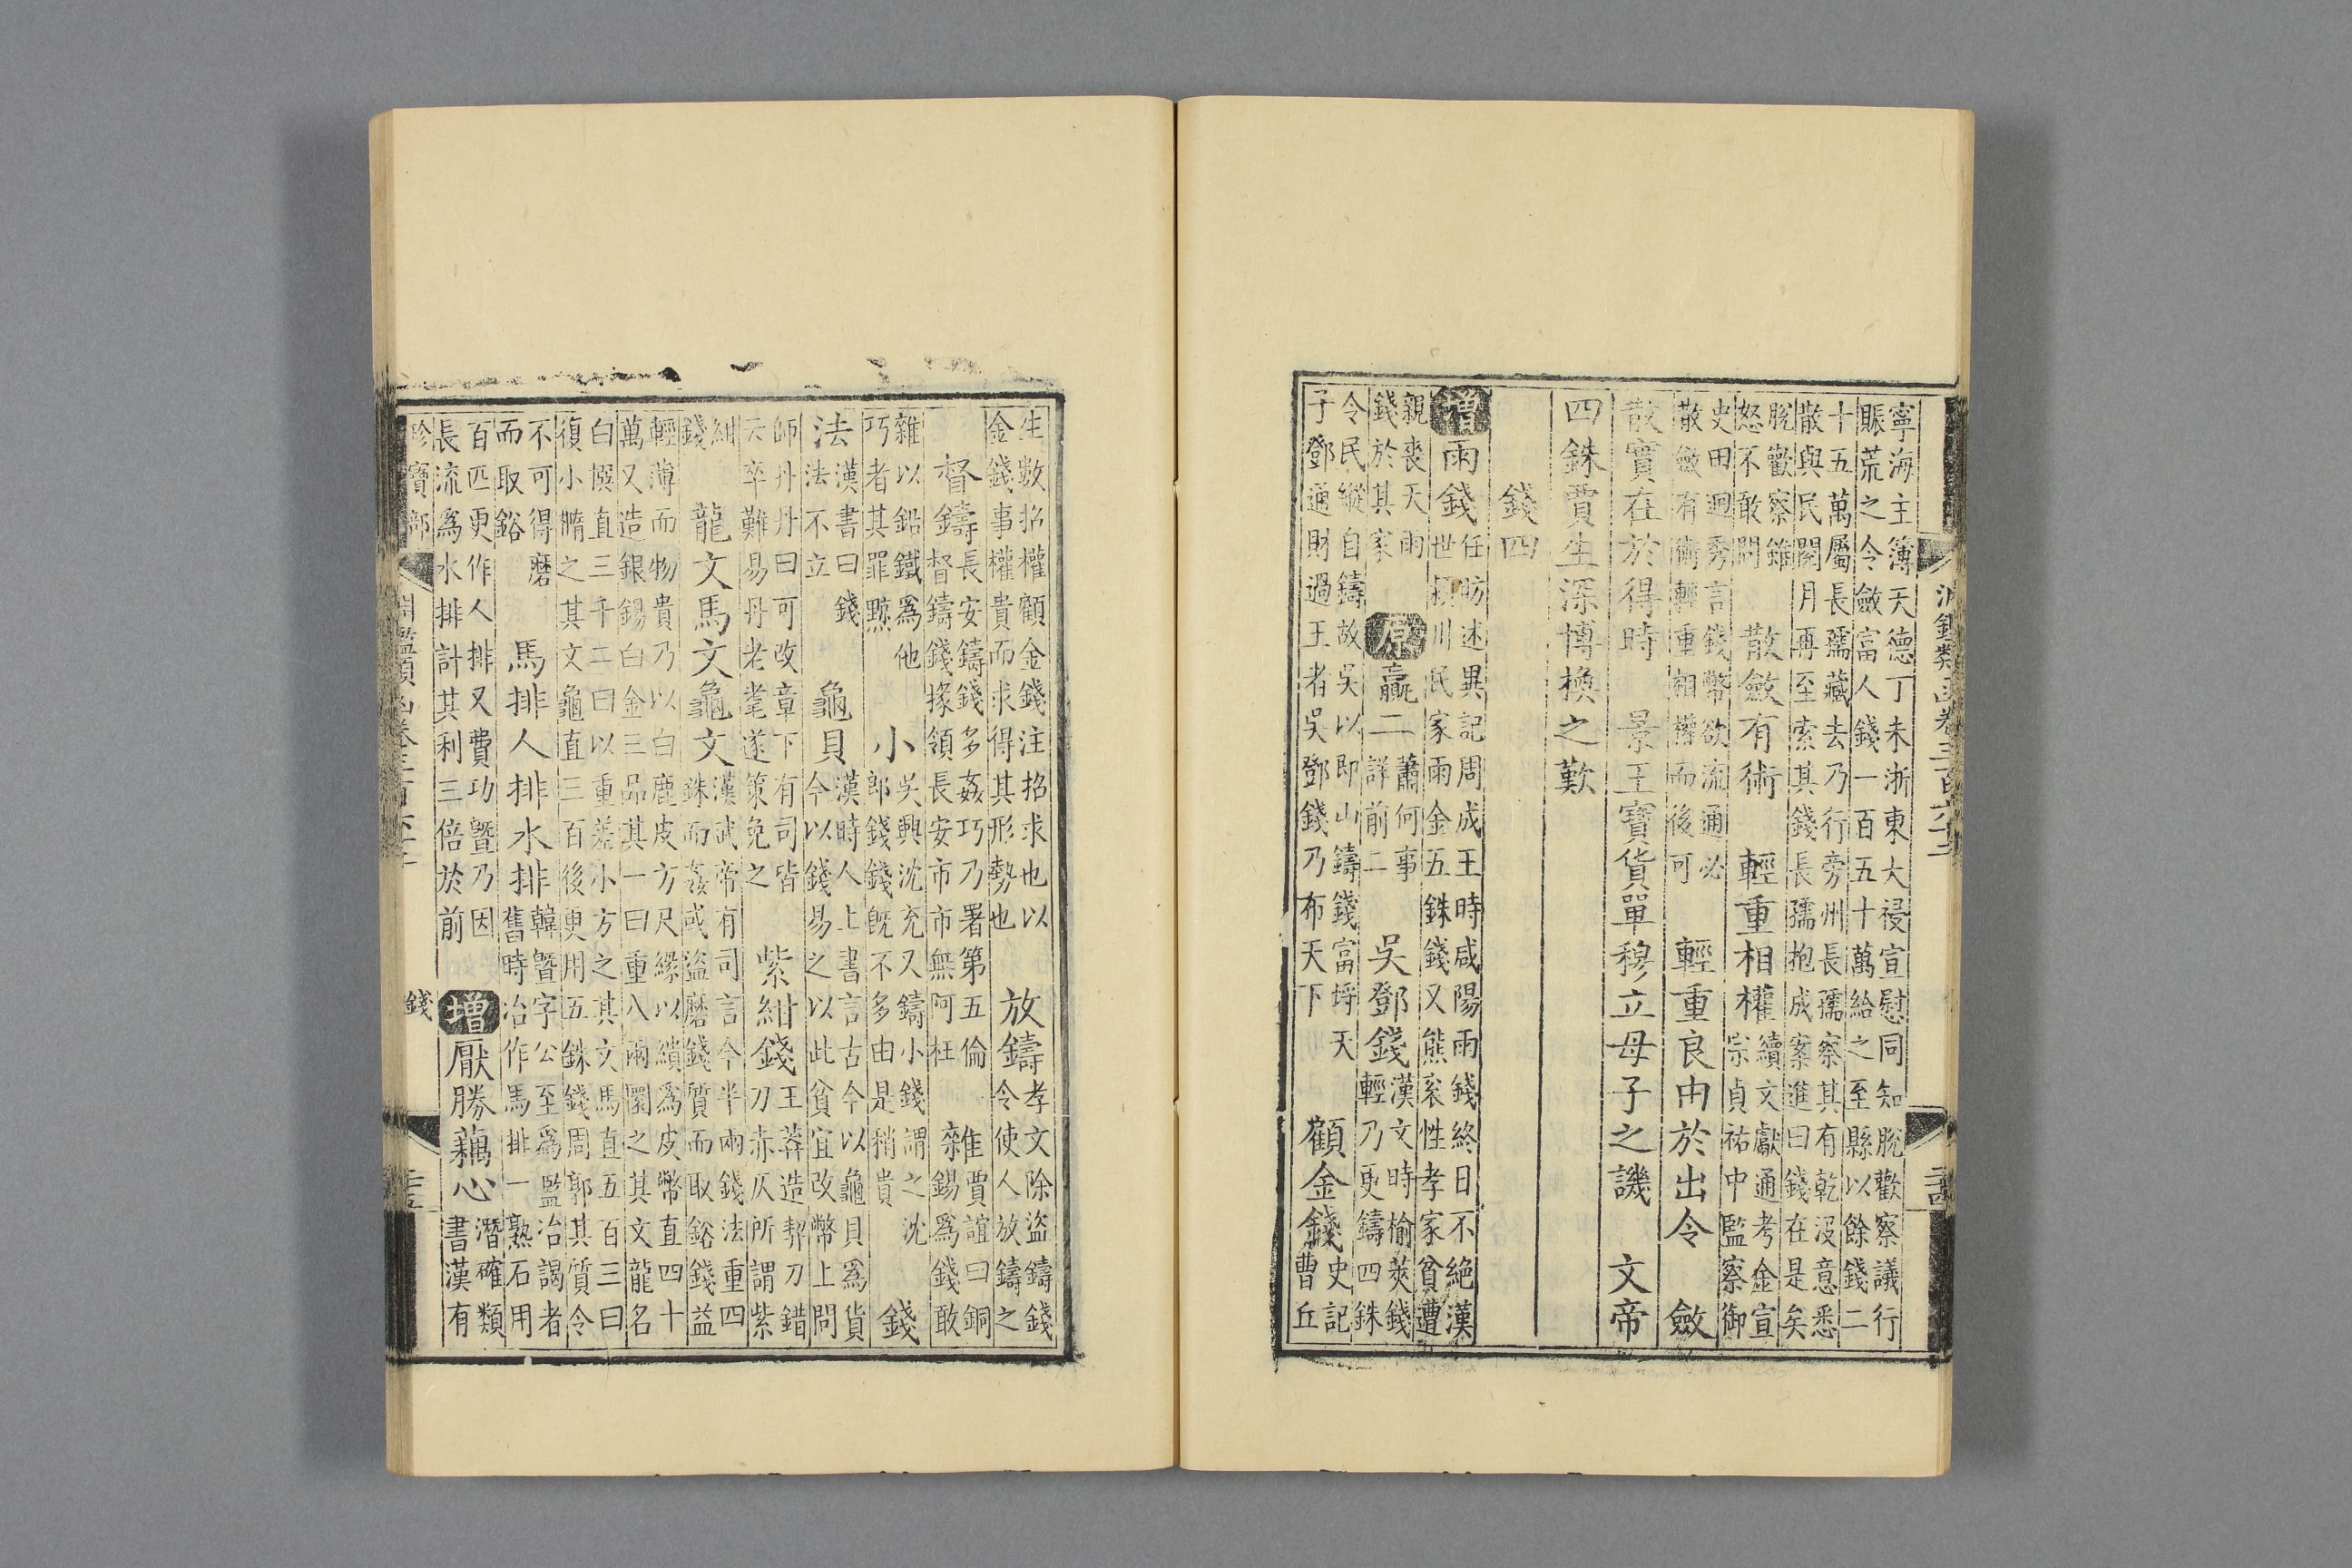 淵鑑類函卷三百六十二
寧海主簿天德丁未浙東大祲宣慰同知脫歡察議行
賑荒之令斂富人錢一百五十萬給之至縣以餘錢二
十五萬屬長孺藏去乃行旁州長孺察其有乾沒意悉
散與民閱月再至索其錢長孺抱成案進曰錢在是矣
脫歡察雖
怒不敢問
散斂有術 輕重相權
續文獻通考金宣
宗貞祐中監察御
史田迥秀言錢幣欲流通必
散斂有術輕重相權而後可
輕重良由於出令 斂
散實在於得時 景王寶貨單穆立母子之譏 文帝
四銖賈生深博換之歎
錢四
增雨錢
任昉述異記周成王時咸陽雨錢終日不絕漢
世潁川民家雨金五銖錢又熊袞性孝家貧遭
親喪天雨
錢於其家
原贏二
蕭何事
詳前二
吳鄧錢
漢文時榆莢錢
輕乃更鑄四銖
令民縱自鑄故吳以即山鑄錢富埒天
子鄧通財過王者吳鄧錢乃布天下
顧金錢
史記
曹丘
生數招權顧金錢注招求也以
金錢事權貴而求得其形勢也
放鑄
孝文除盜鑄錢
令使人放鑄之
督鑄
長安鑄錢多姦巧乃署第五倫
督鑄錢掾領長安市市無阿枉
雜
賈誼曰銅
錫爲錢敢
雜以鉛鐵爲他
巧者其罪黥
小
吳興沈充又鑄小錢謂之沈
郎錢錢既不多由是稍貴
錢
法
漢書曰錢
法不立
龜貝
漢時人上書言古今以龜貝爲貨
今以錢易之以此貧宜改幣上問
師丹丹曰可改章下有司皆
天卒難易丹老耄遂策免之
紫紺錢
王莽造契刀錯
刀赤仄所謂紫
紺
錢
龍文馬文龜文
漢武帝有司言今半兩錢法重四
銖而姦或盜磨錢質而取鋊錢益
輕薄而物貴乃以白鹿皮方尺緣以繢爲皮幣直四十
萬又造銀錫白金三品其一曰重八兩圜之其文龍名
白撰直三千二曰以重差小方之其文馬直五百三曰
復小橢之其文龜直三百後更用五銖錢周郭其質令
不可得磨
而取鋊
馬排人排水排
韓暨字公至爲監冶謁者
舊時冶作馬排一熟石用
百匹更作人排又費功暨乃因
長流爲水排計其利三倍於前
增厭勝藕心
潛確類
書漢有
珍寶部 淵鑑類函卷三百六十二 錢